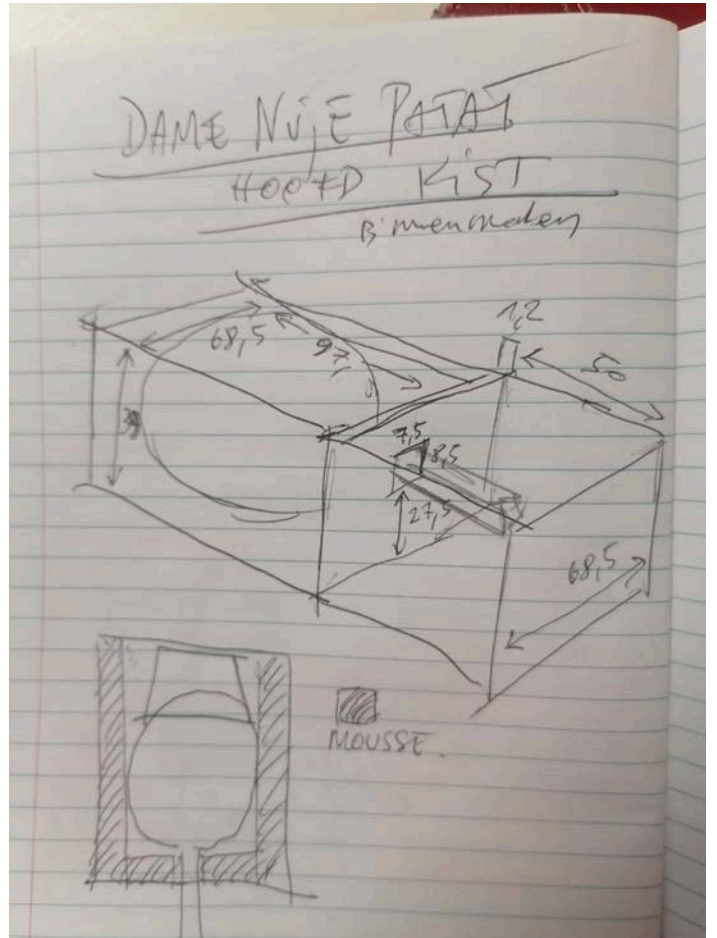 DAME NUJE PATAT
HOOFD KIST
Binnenmaten
1,2
68,5
97,
50
39
7,5
8,5
27,5
68,5
MOUSSE.